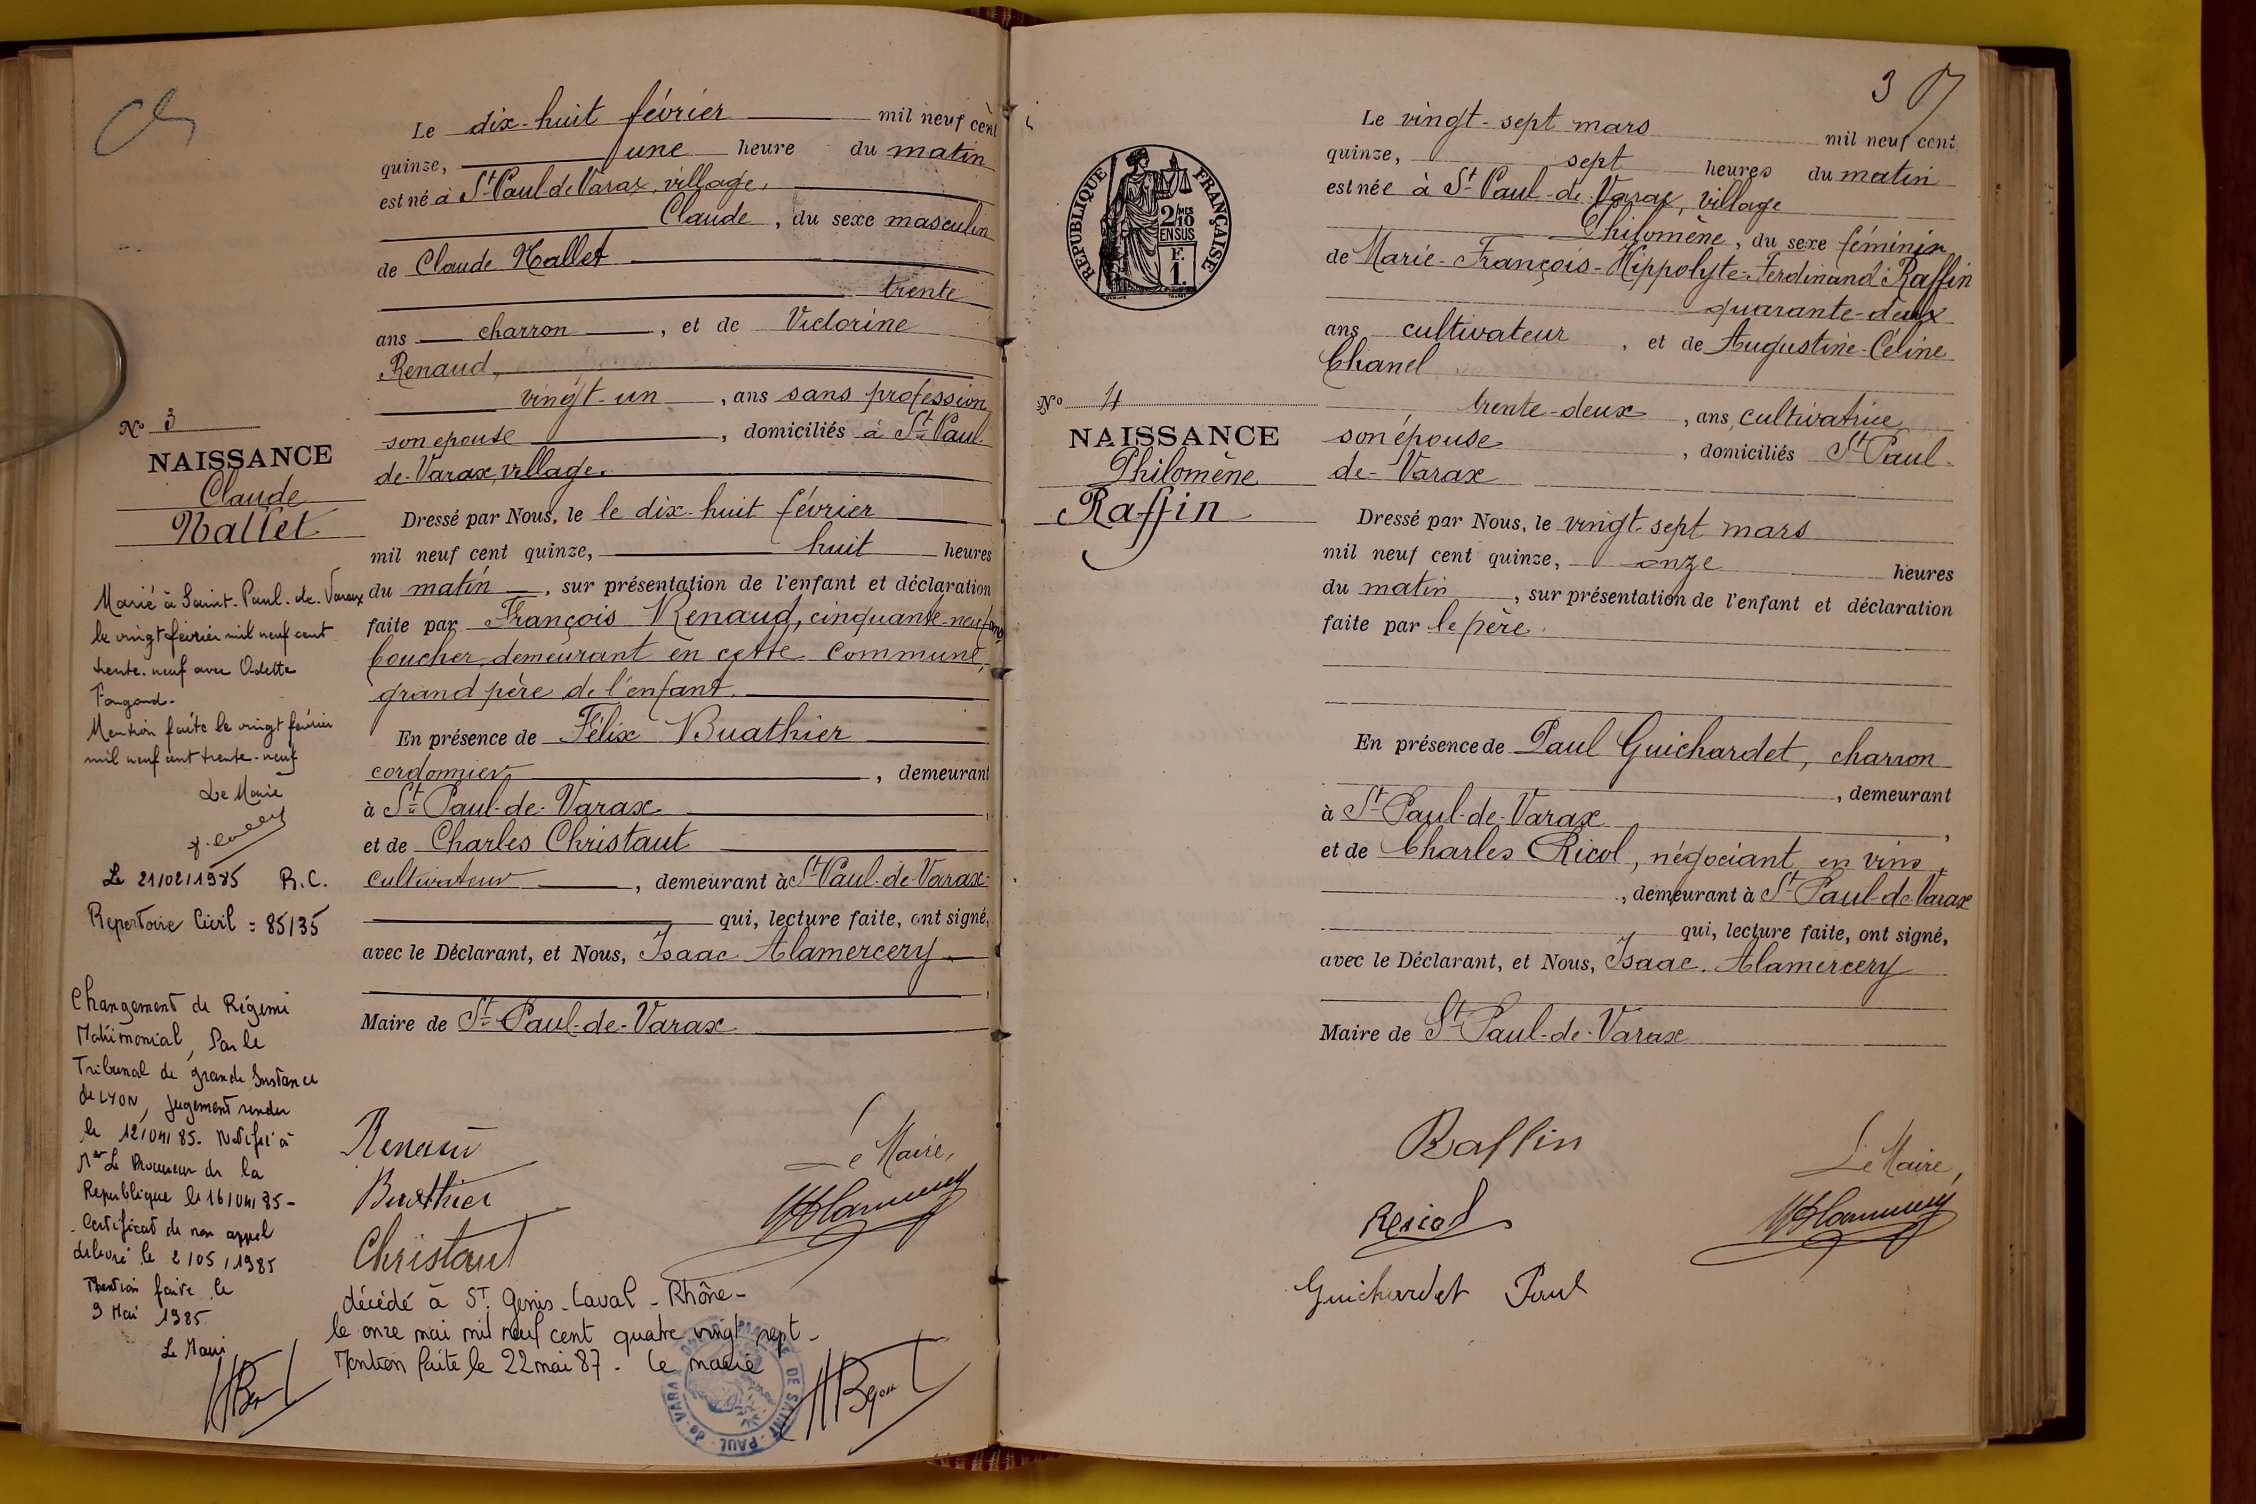 Le dix-huit février mil neuf cent
quinze, une heure du matin
est né à St Paul-de Varax, village,
Claude, du sexe masculin
de Claude Mallet
trente
ans charron, et de Victorine
Renaud,
vingt-un, ans sans profession
son épouse, domiciliés à St Paul-
de-Varax, village.
Dressé par Nous, le le dix-huit février
mil neuf cent quinze, huit heures
du matin, sur présentation de l'enfant et déclaration
faite par François Renaud, cinquante-neuf ans
boucher, demeurant en cette commune,
grand père de l'enfant.
En présence de Félix Buathier
cordonnier, demeurant
à St Paul-de-Varax
et de Charles Christaut
cultivateur, demeurant à St Paul-de-Varax
qui, lecture faite, ont signé,
avec le Déclarant, et Nous, Isaac Alamercery
Maire de St Paul-de-Varax
Renaud
Le Maire,
Buathier
Christaut
décédé à ST. Genis-Laval - Rhône -
le onze mai mil neuf cent quatre vingt sept -
Mention faite le 22 mai 87 - Le maire
No 3
NAISSANCE
Claude
Mallet
Marié à Saint-Paul-de-Varax
le vingt février mil neuf cent
trente-neuf avec Odette
Mention faite le vingt février
mil neuf cent trente-neuf
Le Maire
Le 21/02/1985 R.C.
Repertoire Civil = 85/35
Changement de Régime
Matrimonial, Par le
Tribunal de grande Instance
de LYON, jugement rendu
le 12/04/85. Notifié à
Mr Le Procureur de la
Republique le 16/04/85 -
Certificat de non appel
délivré le 2/05/1985
Mention faite le
9 Mai 1985
Le Maire
3
Le vingt-sept mars mil neuf cent
quinze, sept heures du matin
est née à St Paul-de-Varax, village
Philomène, du sexe féminin
de Marie-François-Hippolyte-Ferdinand Raffin
quarante-deux
ans cultivateur, et de Augustine-Céline
Chanel
trente-deux, ans, cultivatrice
son épouse, domiciliés St Paul-
de-Varax
Dressé par Nous, le vingt-sept mars
mil neuf cent quinze, onze heures
du matin, sur présentation de l'enfant et déclaration
faite par le père.
En présence de Paul Guichardet, charron
, demeurant
à St Paul-de-Varax,
et de Charles Ricol, négociant en vins,
, demeurant à St Paul-de-Varax
qui, lecture faite, ont signé,
avec le Déclarant, et Nous, Isaac Alamercery
Maire de St Paul-de-Varax
Raffin
Le Maire,
Guichardet Paul
RÉPUBLIQUE FRANÇAISE
2/MES
10
EN SUS
F.
1.
No 4
NAISSANCE
Philomène
Raffin